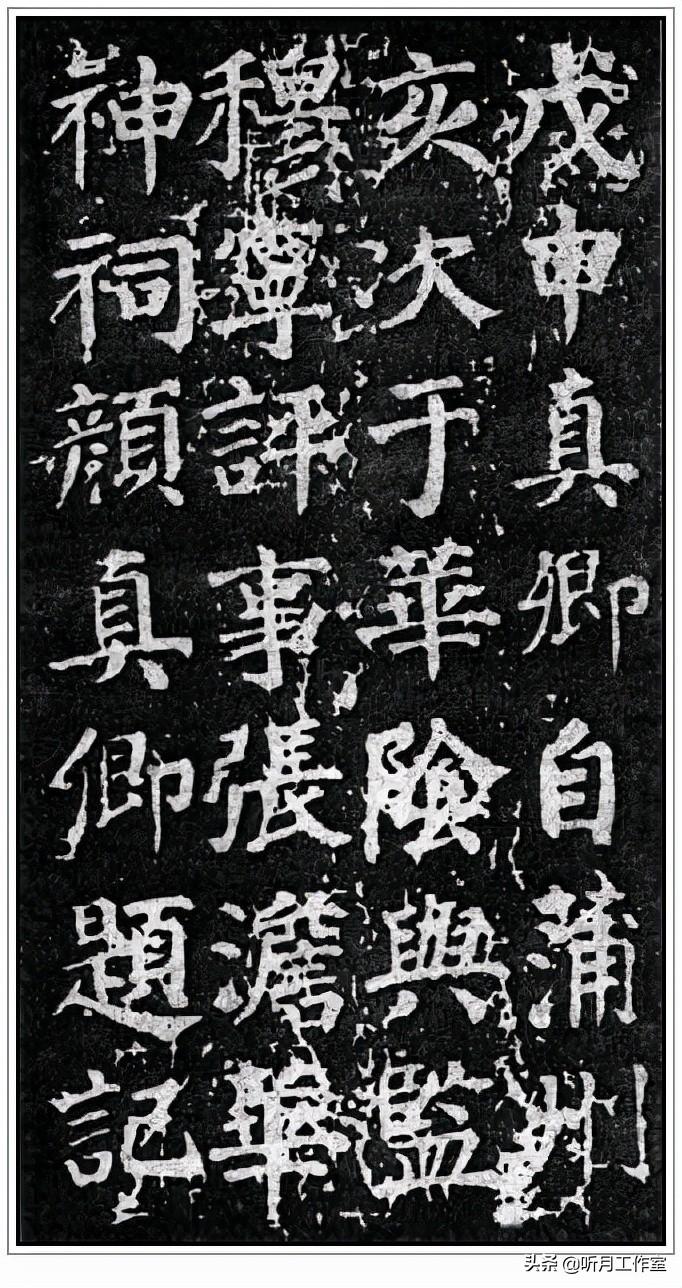 戊申真卿自蒲州
亥次于華陰與監
穆寧評事張澹華
神祠顏真卿題記
头条 @听月工作室